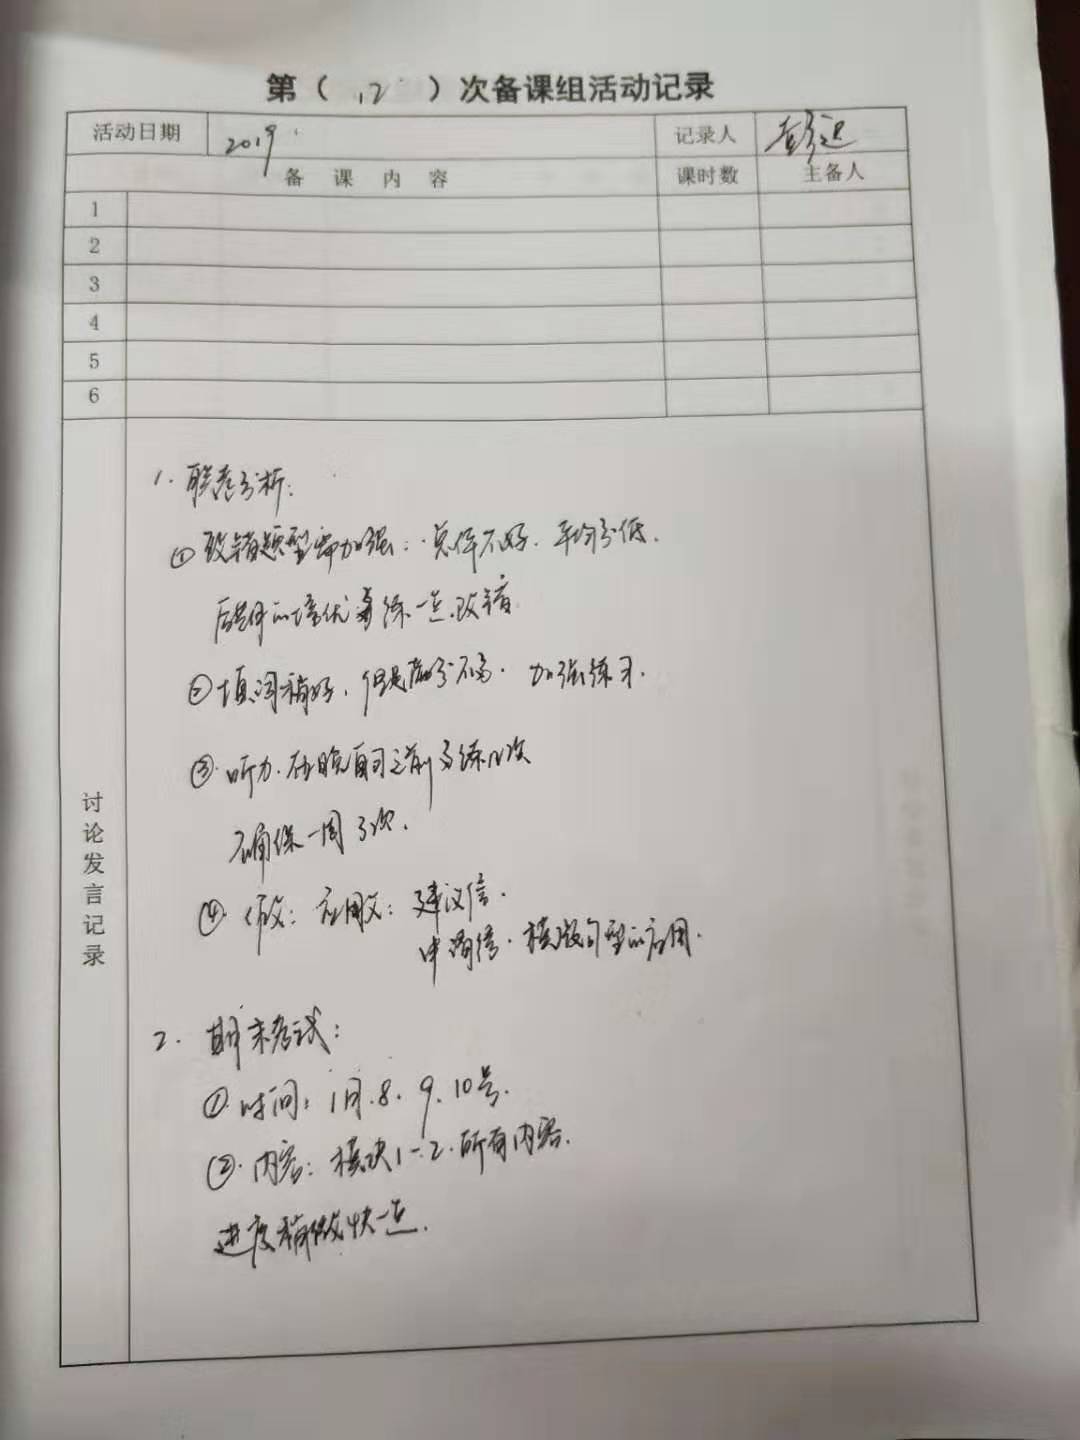 第（12）次备课组活动记录
活动日期 2019 记录人 彭
备 课 内 容 课时数 主备人
1
2
3
4
5
6
讨论发言记录
1. 联考分析：
① 改错题型需加强：总体不好．平均分低．
练一点改错
② 填词稍好，但是高分不高．加强练习．
③ 听力．在晚自习之前多练几次
确保一周3次．
④ 作文：应用文：建议信．
申请信．模版句型的应用．
2. 期末考试：
① 时间：1月8、9、10号．
② 内容：模块1-2．所有内容．
进度稍微快一点．